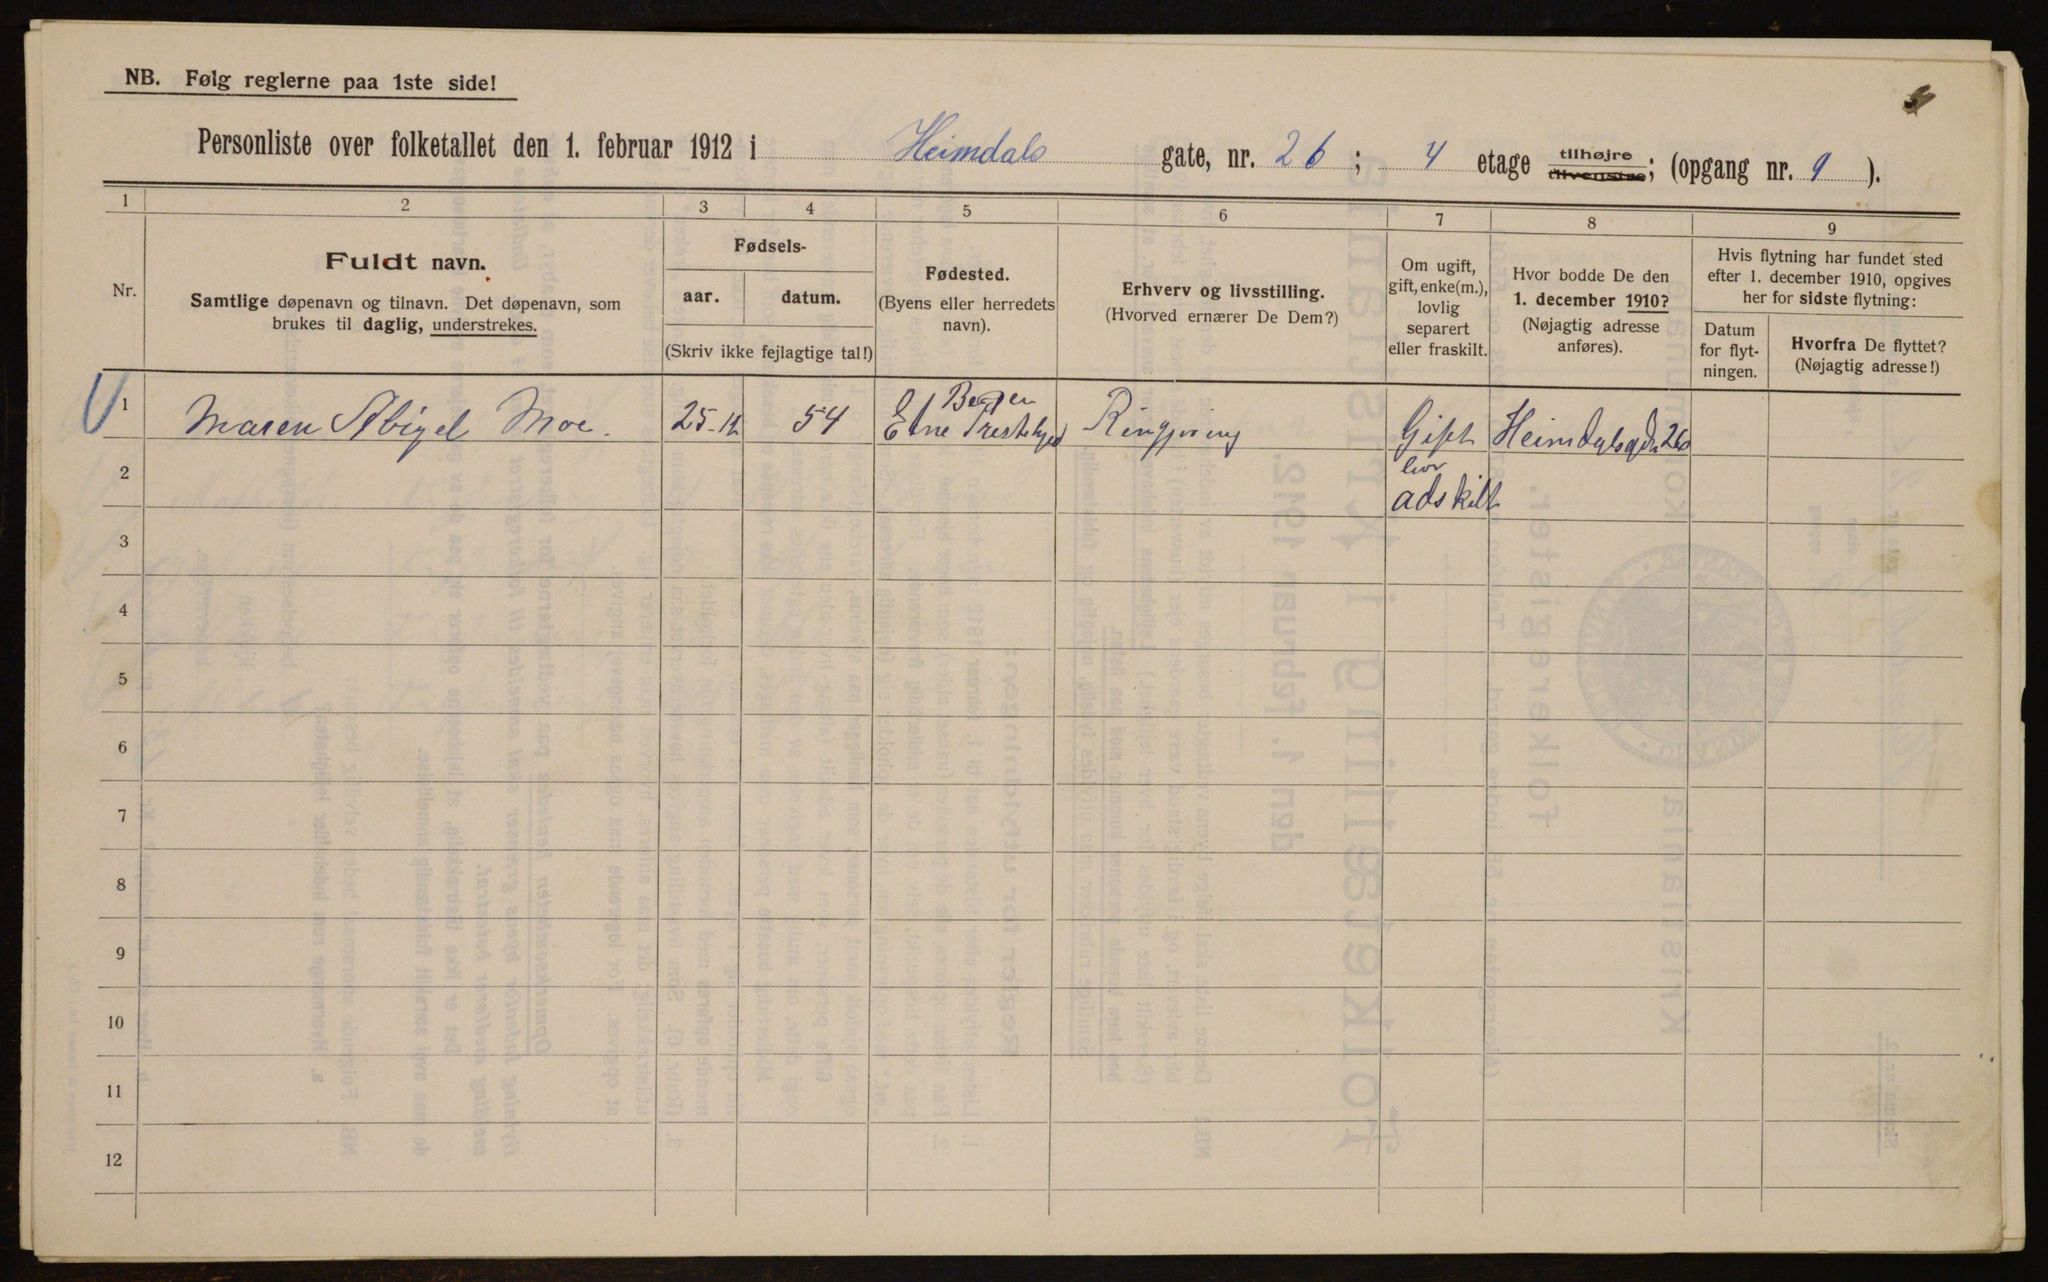 NB. Følg reglerne paa 1ste side!
Personliste over folketallet den 1. februar 1912 i Heimdals gate, nr. 26 ; 4 etage tilhøjre tilvenstre; (opgang nr. 9 ).
1 2 3 4 5 6 7 8 9
Nr.
Fuldt navn.
Samtlige døpenavn og tilnavn. Det døpenavn, som
brukes til daglig, understrekes.
Fødsels-
aar. datum.
(Skriv ikke fejlagtige tal!)
Fødested.
(Byens eller herredets
navn).
Erhverv og livsstilling.
(Hvorved ernærer De Dem?)
Om ugift,
gift, enke(m.),
lovlig
separert
eller fraskilt.
Hvor bodde De den
1. december 1910?
(Nøjagtig adresse
anføres).
Hvis flytning har fundet sted
efter 1. december 1910, opgives
her for sidste flytning:
Datum
for flyt-
ningen.
Hvorfra De flyttet?
(Nøjagtig adresse!)
1 Maren Abigel Moe. 25-12 54 Bergen
Etne Prestehjed Ringjøring Gift Heimdalsgdn 26
2 lever
adskilt
3
4
5
6
7
8
9
10
11
12